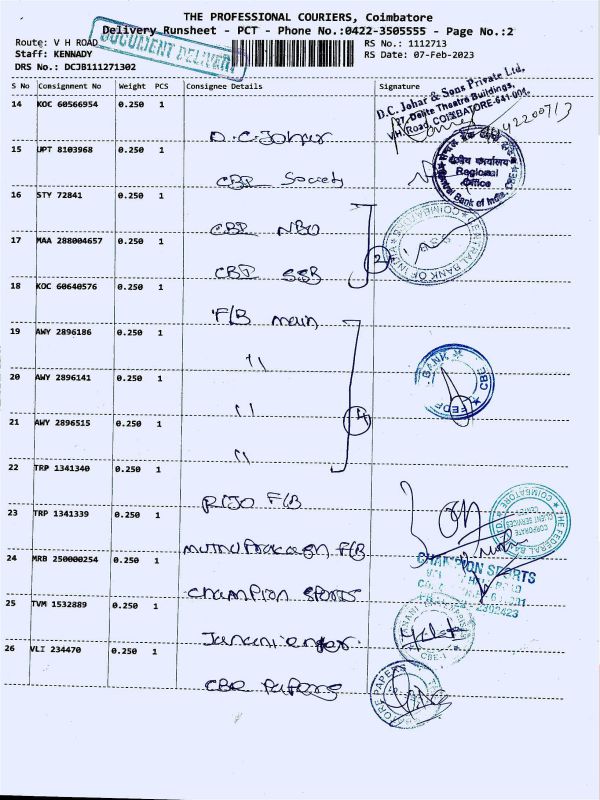 THE PROFESSIONAL COURIERS, Coimbatore
Delivery Runsheet - PCT - Phone No.:0422-3505555 - Page No.:2
Route: V H ROAD
RS No.: 1112713
Staff: KENNADY
RS Date: 07-Feb-2023
DRS No.: DCJB111271302
DOCUMENT DELIVERY
S No Consignment No Weight PCS Consignee Details Signature
14 KOC 60566954 0.250 1
D.C. Johar
D.C. Johar & Sons Private Ltd.
27, Delite Theatre Buildings,
V.H. Road, COIMBATORE-641 001.
15 UPT 8103968 0.250 1
CBE Society
क्षेत्रीय कार्यालय
Regional
Office
Bank of India, CBE
16 STY 72841 0.250 1
CBE NBO
17 MAA 288004657 0.250 1
CBE SSB
2
CENTRAL BANK OF INDIA
COIMBATORE
18 KOC 60640576 0.250 1
F/B main
19 AWY 2896186 0.250 1
"
20 AWY 2896141 0.250 1
"
21 AWY 2896515 0.250 1
"
4
BANK
CBE
22 TRP 1341340 0.250 1
RIJO F/B
23 TRP 1341339 0.250 1
F/B
THE FEDERAL BANK LTD.
CORPORATE
CLIENT SERVICES
COIMBATORE
24 MRB 250000254 0.250 1
Champion Sports
CHAMPION SPORTS
25 TVM 1532889 0.250 1
Janani enter
CBE-1
26 VLI 234470 0.250 1
CBE Papers
PAPERS